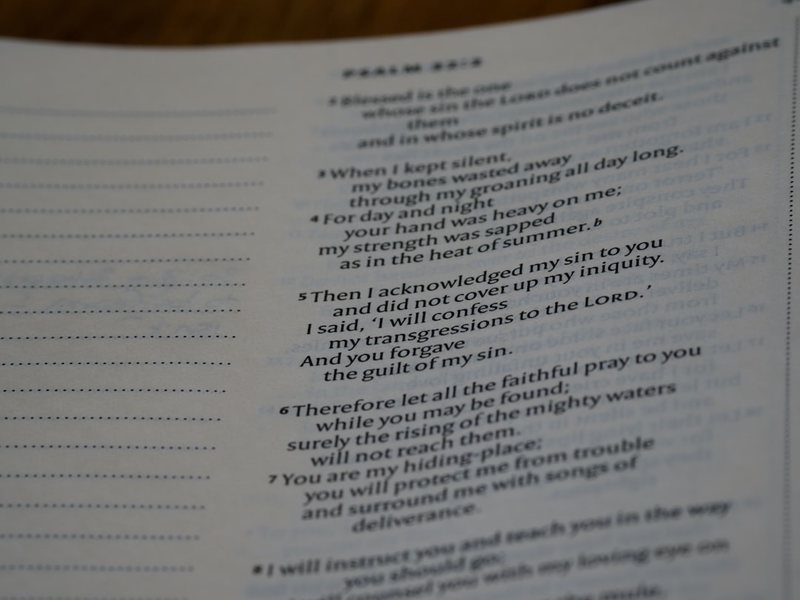 PSALM 32:2
2 Blessed is the one
whose sin the LORD does not count against
them
and in whose spirit is no deceit.
3 When I kept silent,
my bones wasted away
through my groaning all day long.
4 For day and night
your hand was heavy on me;
my strength was sapped
as in the heat of summer. b
5 Then I acknowledged my sin to you
and did not cover up my iniquity.
I said, ‘I will confess
my transgressions to the LORD.’
And you forgave
the guilt of my sin.
6 Therefore let all the faithful pray to you
while you may be found;
surely the rising of the mighty waters
will not reach them.
7 You are my hiding-place;
you will protect me from trouble
and surround me with songs of
deliverance.
8 I will instruct you and teach you in the way
you should go;
counsel you with my loving eye on
the mule,